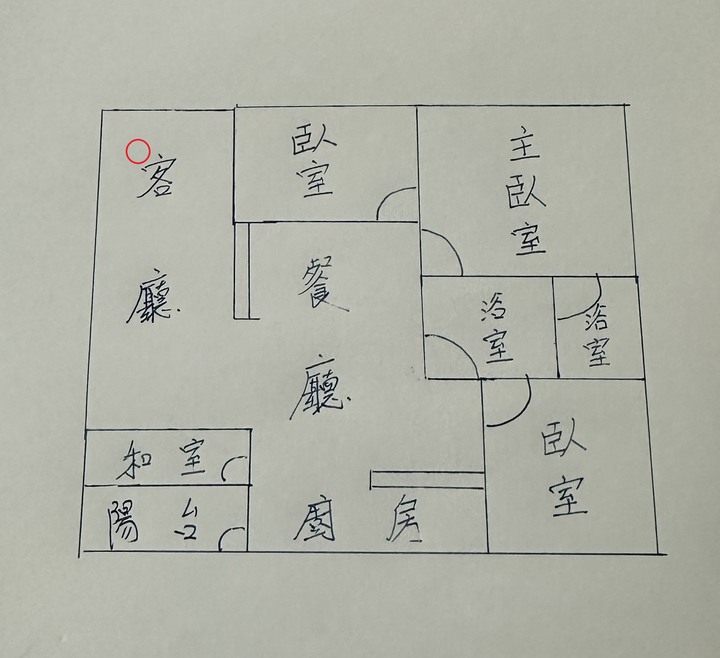 客廳
臥室
主臥室
餐廳
浴室
浴室
和室
臥室
陽台
廚房